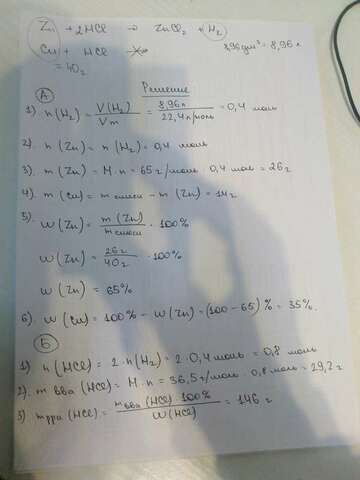 Zn + 2HCl → ZnCl₂ + H₂
Cu + HCl ↛ 8,96 дм³ = 8,96 л
= 40 г
Решение
А
1) n(H₂) = V(H₂)/Vm = 8,96 л/22,4 л/моль = 0,4 моль
2). n(Zn) = n(H₂) = 0,4 моль
3). m(Zn) = M · n = 65 г/моль · 0,4 моль = 26 г
4). m(Cu) = m смеси – m(Zn) = 14 г
5). W(Zn) = m(Zn)/m смеси · 100%
W(Zn) = 26 г/40 г · 100%
W(Zn) = 65%
6). W(Cu) = 100% – W(Zn) = (100 – 65)% = 35%.
Б
1) n(HCl) = 2 · n(H₂) = 2 · 0,4 моль = 0,8 моль
2). m вва (HCl) = M · n = 36,5 г/моль · 0,8 моль = 29,2 г
3) m рра (HCl) = m вва (HCl) 100%/W(HCl) = 146 г